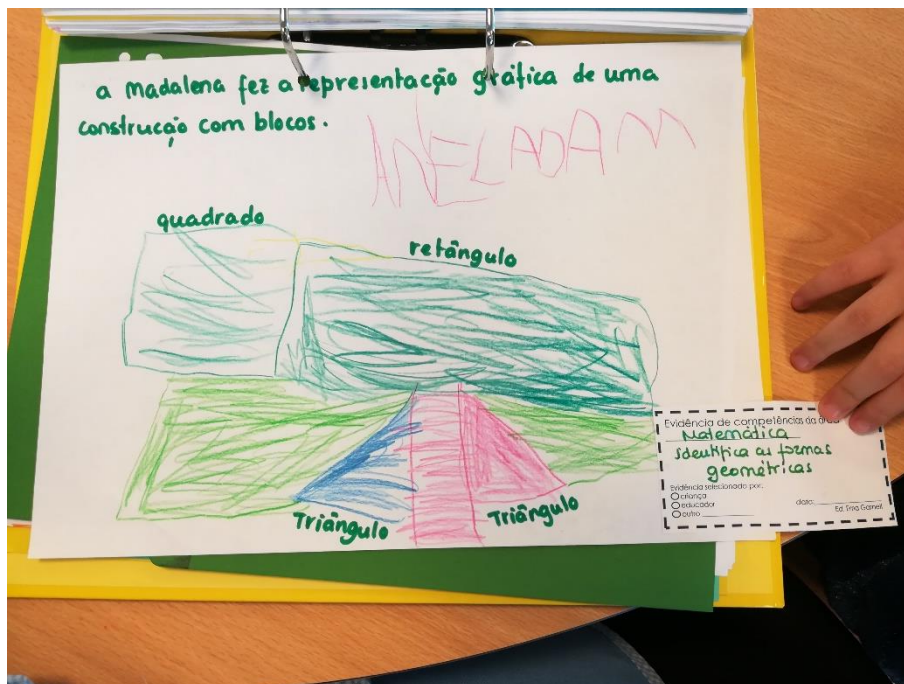 a madalena fez a representação gráfica de uma
construção com blocos.
ANELADAM
quadrado
retângulo
Triângulo
Triângulo
Evidência de competências da área
Matemática
identifica as formas
geométricas
Evidência selecionada por:
criança
educador
outro
data: